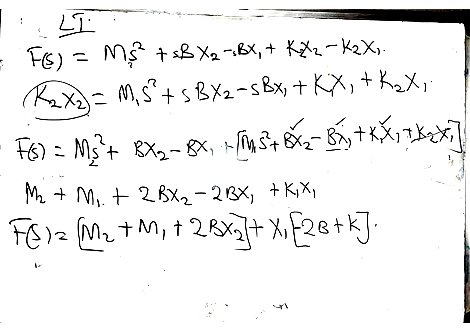 LT.
F(s) = M₂s² + sBX₂ - sBX₁ + K₂X₂ - K₂X₁.
K₂X₂ = M₁s² + sBX₂ - sBX₁ + K₁X₁ + K₂X₁.
F(s) = M₂s² + BX₂ - BX₁ + [M₁s² + BX₂ - BX₁ + K₁X₁ + K₂X₁]
M₂ + M₁ + 2BX₂ - 2BX₁ + K₁X₁
F(s) = [M₂ + M₁ + 2BX₂] + X₁[-2B + K].